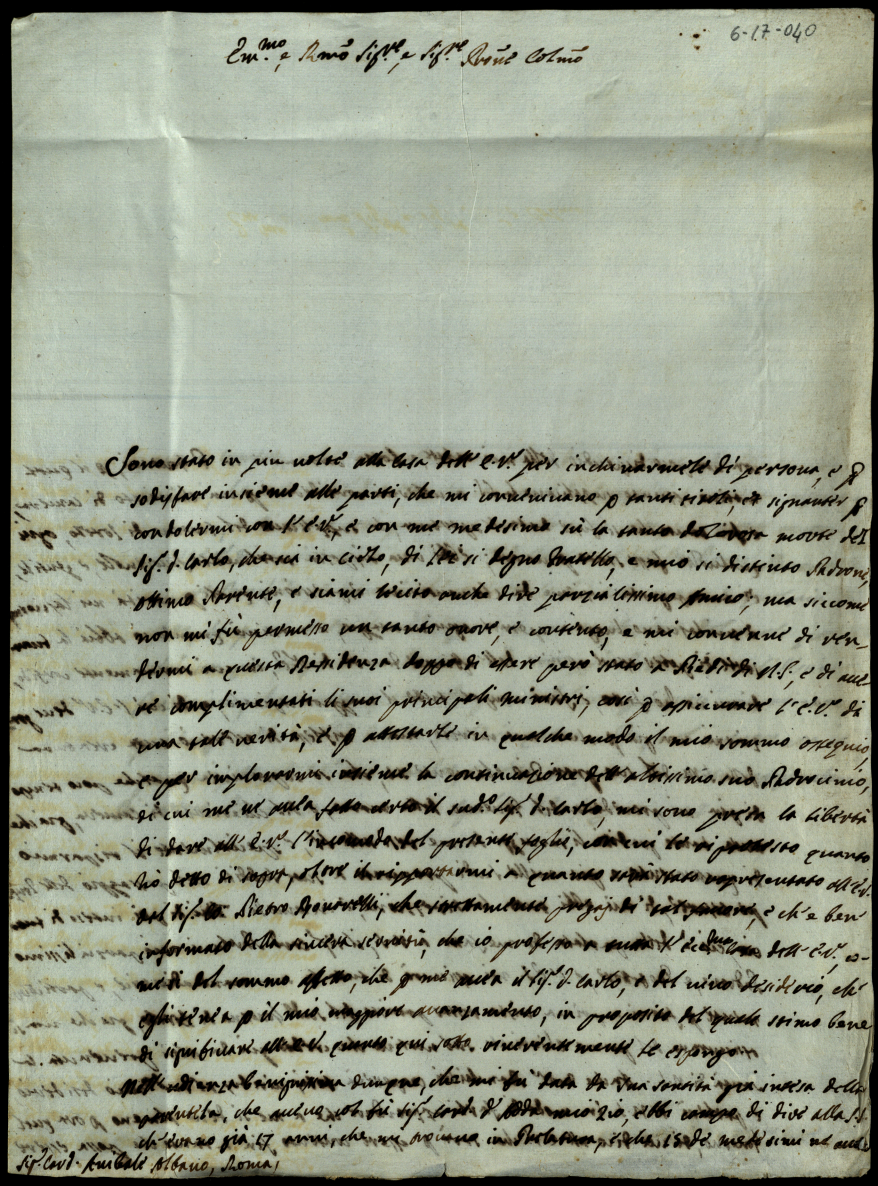 6-17-040
Em.mo, e Rmõ Sig.re, e Sig.re Prõne Colmõ
Sono stato in piu volte alla Casa dell' E.V. per inchinarmele di persona, e p
sodisfare insieme alle parti, che mi convenivano p tanti titoli, et signanter p
condolermi con l' E.V., e con me medesimo sù la tanto dolorosa morte del
Sig. D. Carlo, che sia in Cielo, di Lei si degno Fratello, e mio si distinto Padrone,
ottimo Parente, e siami lecito anche dire parzialissimo Amico; ma siccome
non mi fù permesso un tanto onore, e contento, e mi convenne di ren-
dermi a questa Residenza doppo di essere però stato a Piedi di N.S., e di ave-
re complimentati li suoi principali Ministri, così p assicurare l' E.V. di
una tal verità, e p attestarle in qualche modo il mio sommo ossequio,
e per implorarmi insieme la continuazione dell' altissimo suo Padrocinio,
di cui me ne avea fatto certo il sud.o Sig. D. Carlo, mi sono presa la libertà
di dare all' E.V. l'incomodo del presente foglio, con cui le riprotesto quanto
hò detto di sopra, oltre il rapportarmi a quanto sarà stato rapresentato all' E.V.
dal Sig. Pietro che strettamente pregai di e ch' e ben
informato della sincera servitù, che io professo a tutta l' Ecc.ma Casa dell' E.V., co-
me di del sommo affetto, che p me avea il Sig. D. Carlo, e del vivo desiderio, che
egli tenea p il mio maggiore avanzamento, in proposito del quale stimo bene
di significare all' E.V. quanto qui sotto riverentemente le espongo.
Nell' udienza benignissima dunque, che mi fù data da Sua Santità già intesa della
che aveva col fù Sig. Card. d' Adda mio Zio, ebbi campo di dire alla S.S.
ch' erano già 17 anni, che mi trovava in Prelatura, e che 15 de medesimi ne avea
Sig. Card. Anibale Albano, Roma,